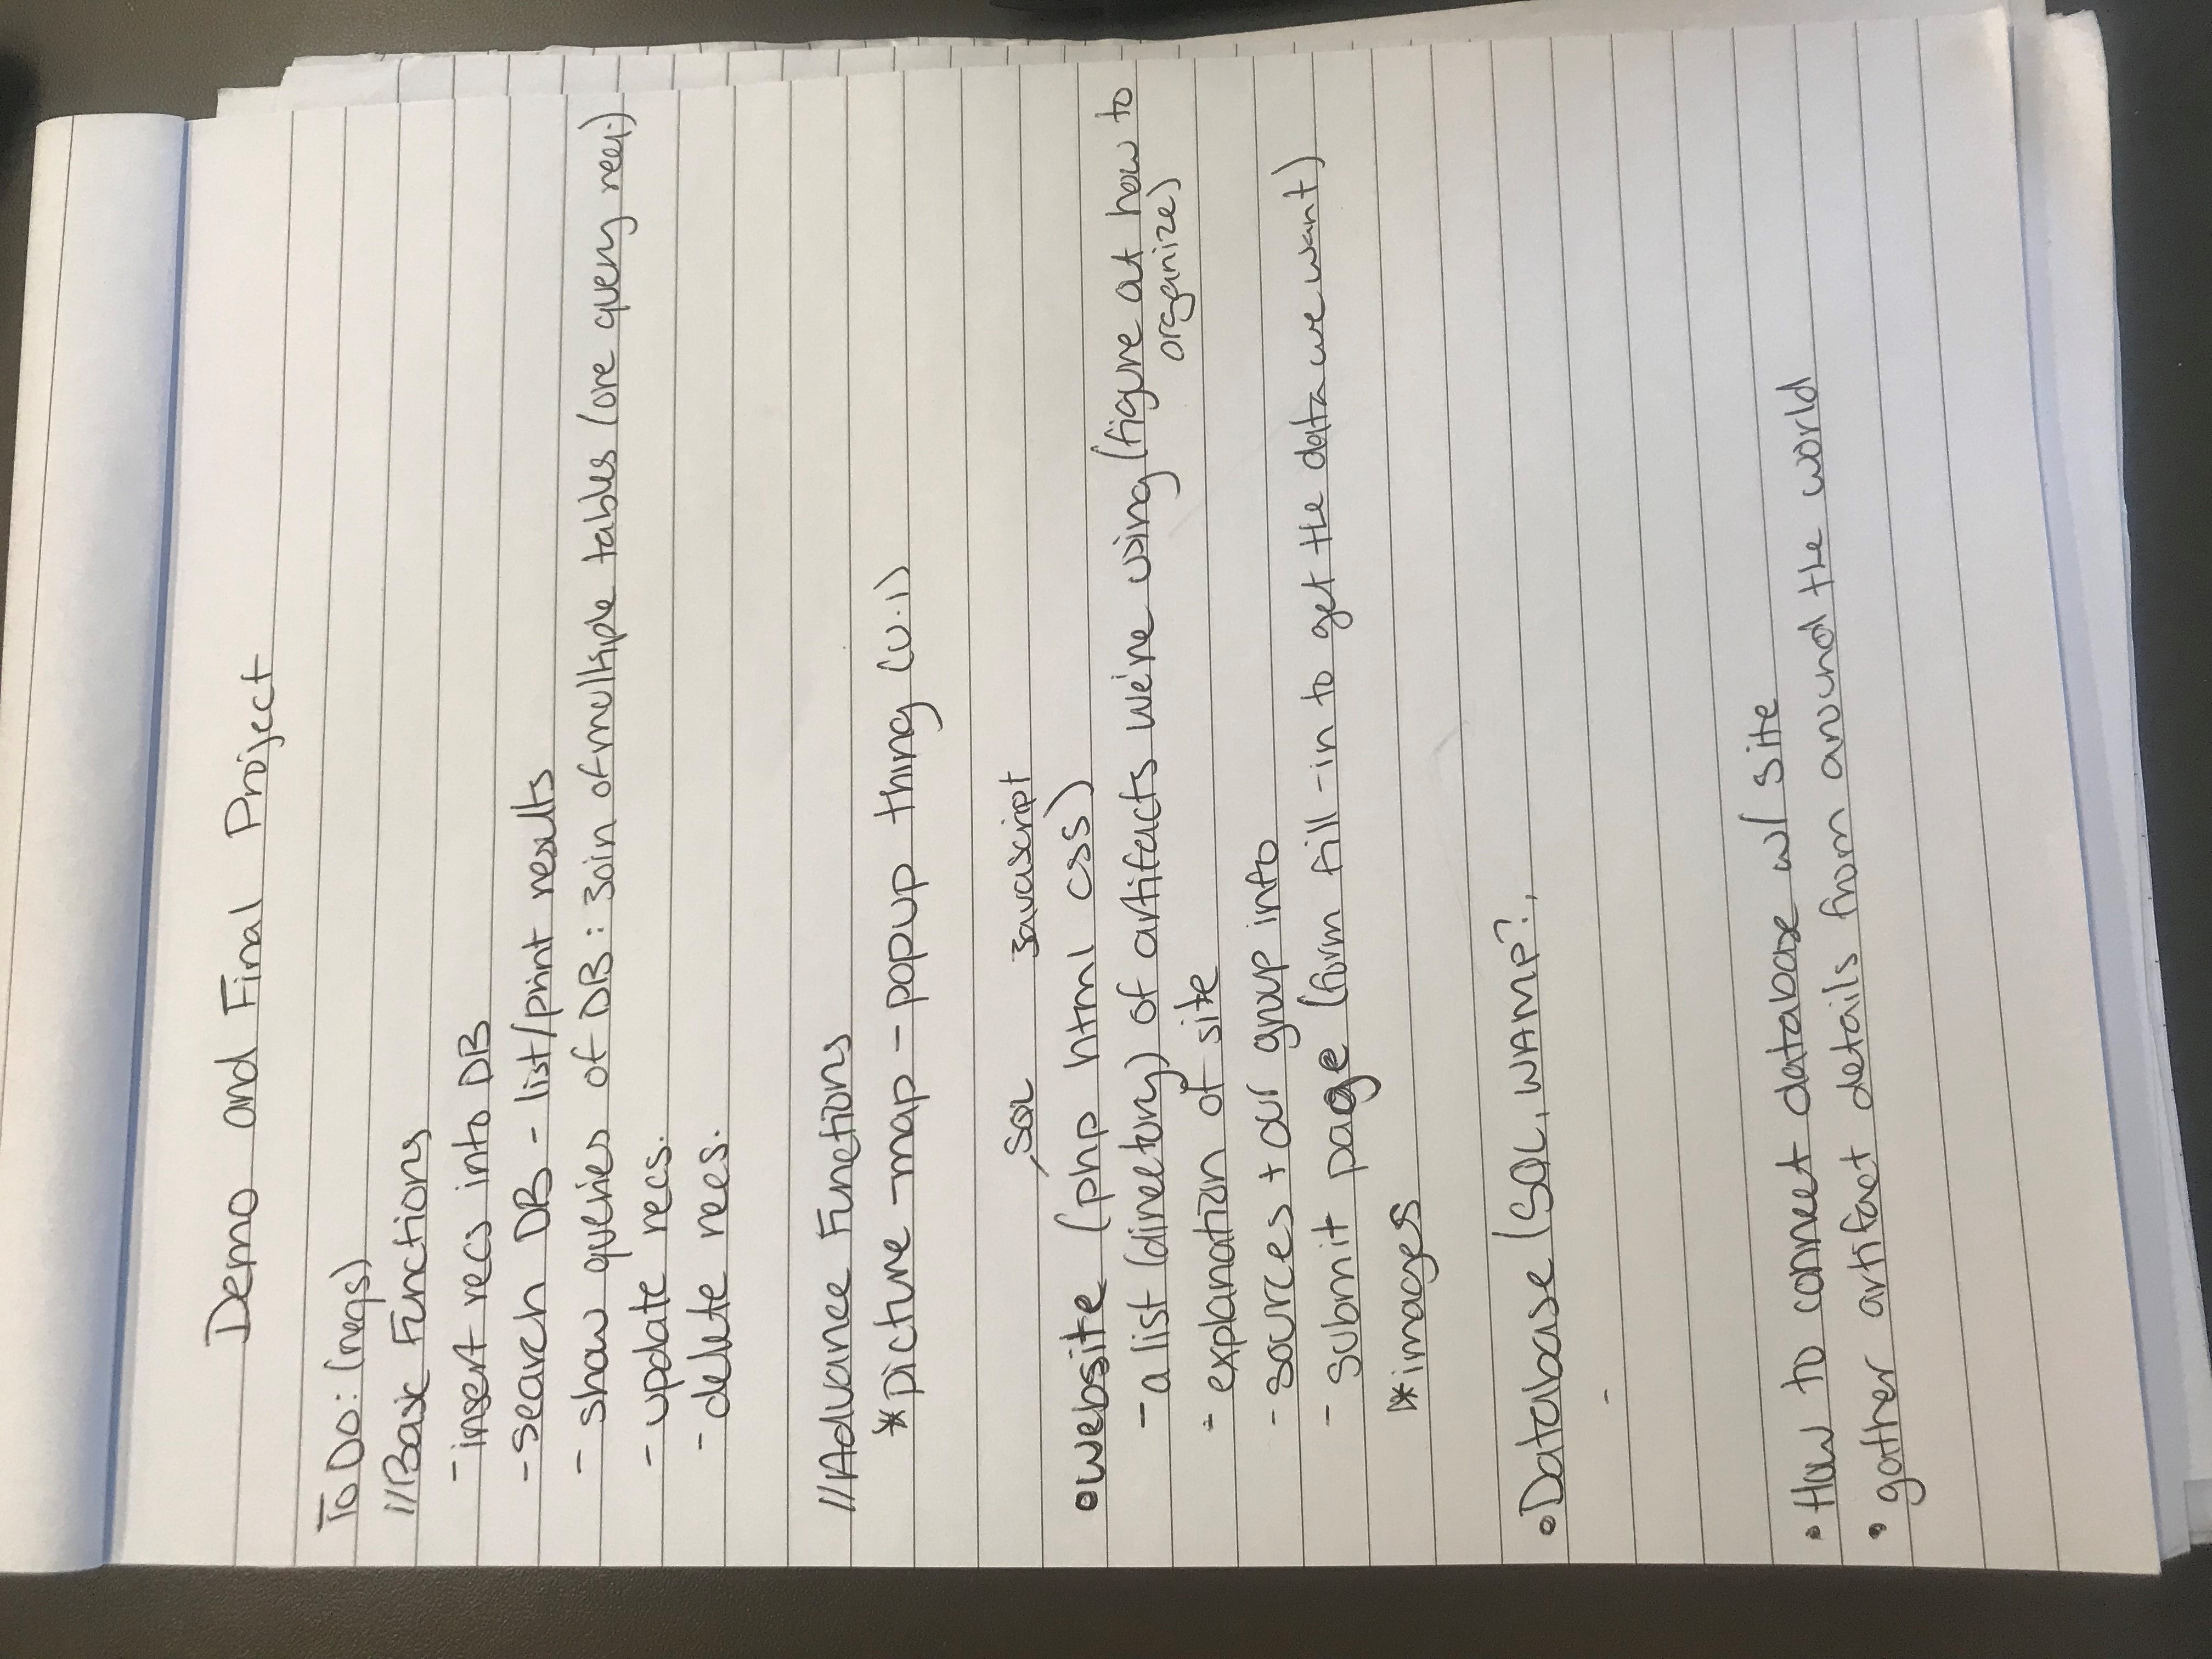 Demo and Final Project
To Do: (reqs)
//Basic Functions
- insert recs into DB
- search DB - list/print results
- show queries of DB: Join of multiple tables (one query req.)
- update recs.
- delete recs.
//Advance Functions
* Picture - map - popup thing (U.I)
SQL Javascript
• website (php html css)
- a list (directory) of artifacts we're using (figure out how to
organize)
- explanation of site
- sources + our group info
- submit page (form fill-in to get the data we want)
* images
• Database (SQL, WAMP?,
-
• How to connect database w/ site
• gather artifact details from around the world